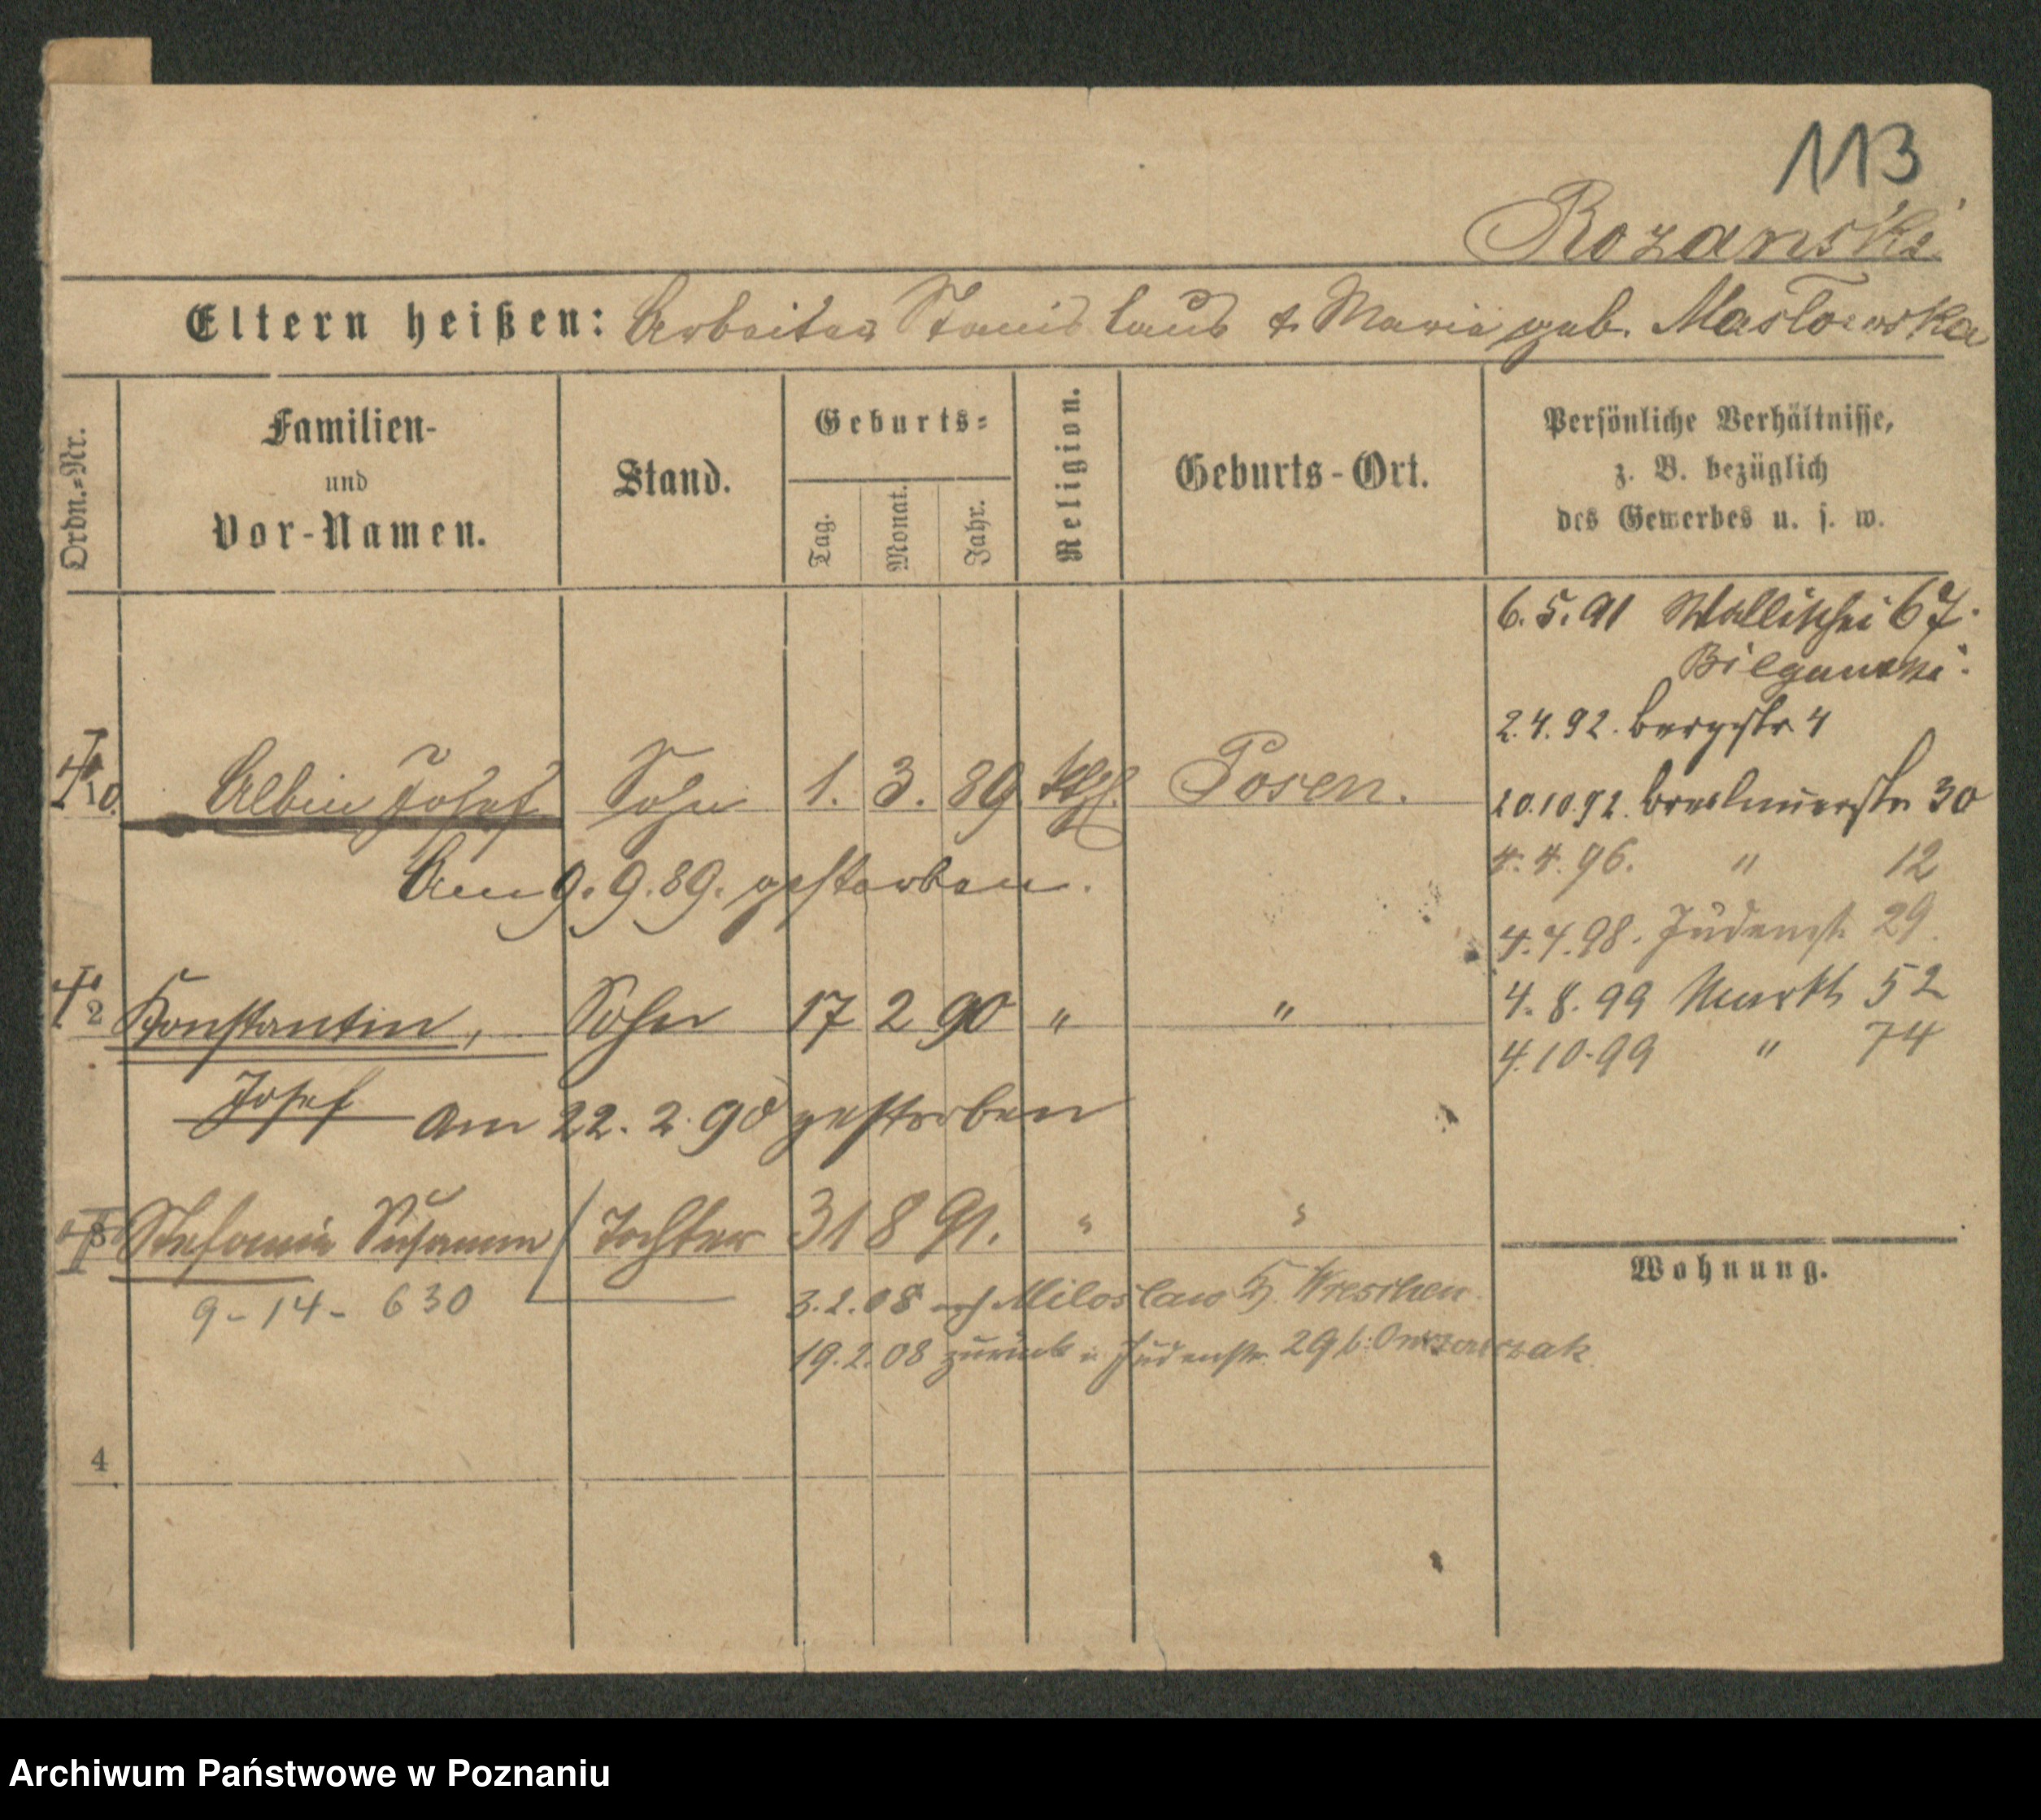 113
Rozanski
Eltern heißen: Arbeiter Stanislaus & Maria geb. Masłowska
Ordn.=Nr.
Familien-
und
Vor-Namen.
Stand.
Geburts=
Tag.
Monat.
Jahr.
Religion.
Geburts-Ort.
Persönliche Verhältnisse,
z. B. bezüglich
des Gewerbes u. s. w.
6. 5. 91 Wallischei 67.
2. 4. 92. Bergstr 4
Albin Josef Sohn 1. 3. 89 kth. Posen.
20.10.92. Breslauerstr 30
Am 9. 9. 89. gestorben.
4. 4. 96. " 12
4. 4. 98. Judenst. 29.
2 Konstantin, Sohn 17 2 90 " "
4. 8. 99 Markt 52
4. 10. 99 " 74
Josef am 22. 2. 90 gestorben
3 Stefania Susanna Tochter 31 8 91. " "
Wohnung.
9-14- 630
3. 2. 08 nach Miloslaw Kr. Wreschen.
19. 2. 08 zurück Judenstr. 29 b.
4
Archiwum Państwowe w Poznaniu